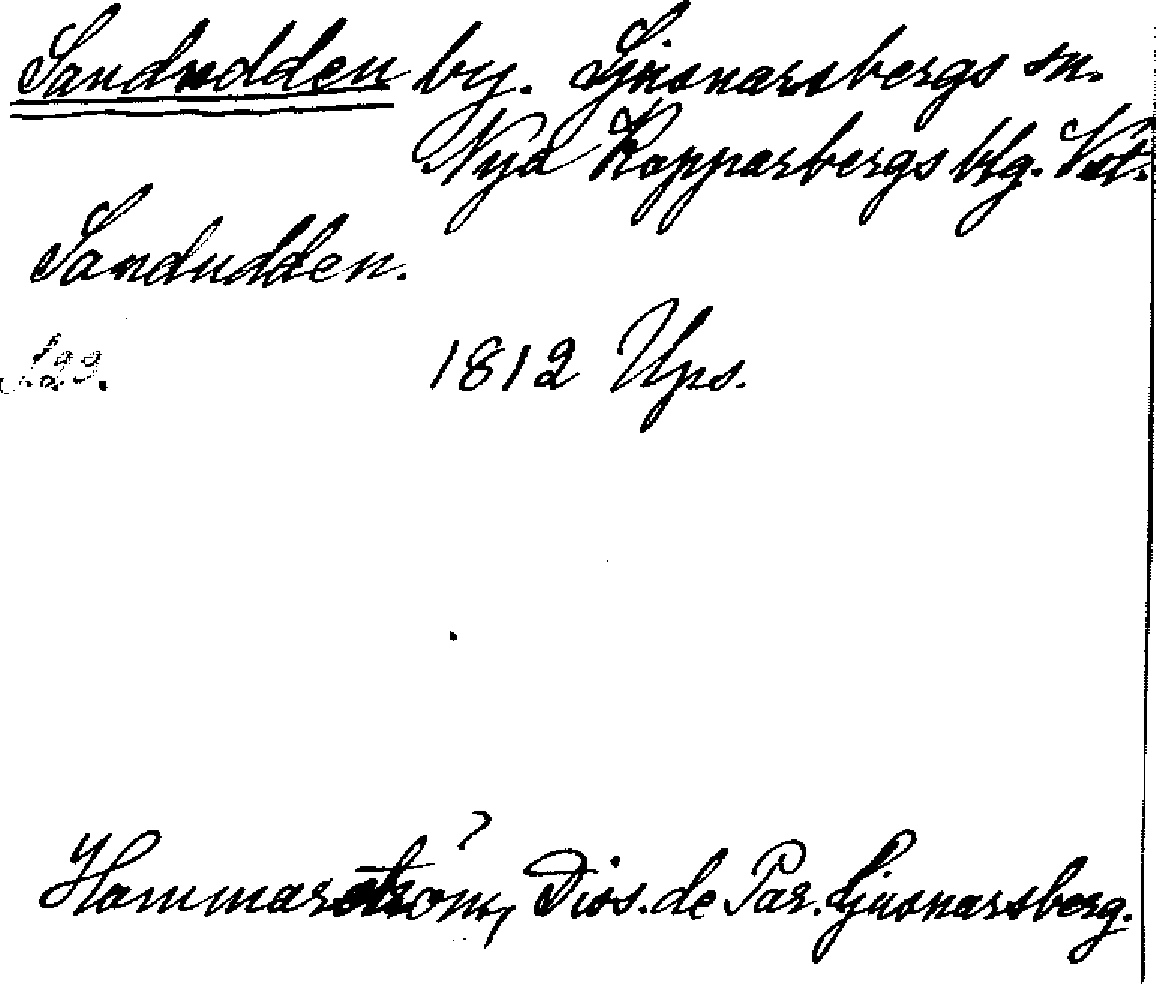 Sandudden by. Ljusnarsbergs sn.
Nya Kopparbergs blg. Väst.
Sandudden.
s. 22. 1812 Ups.
Hammarström, Diss. de Par. Ljusnarsberg.